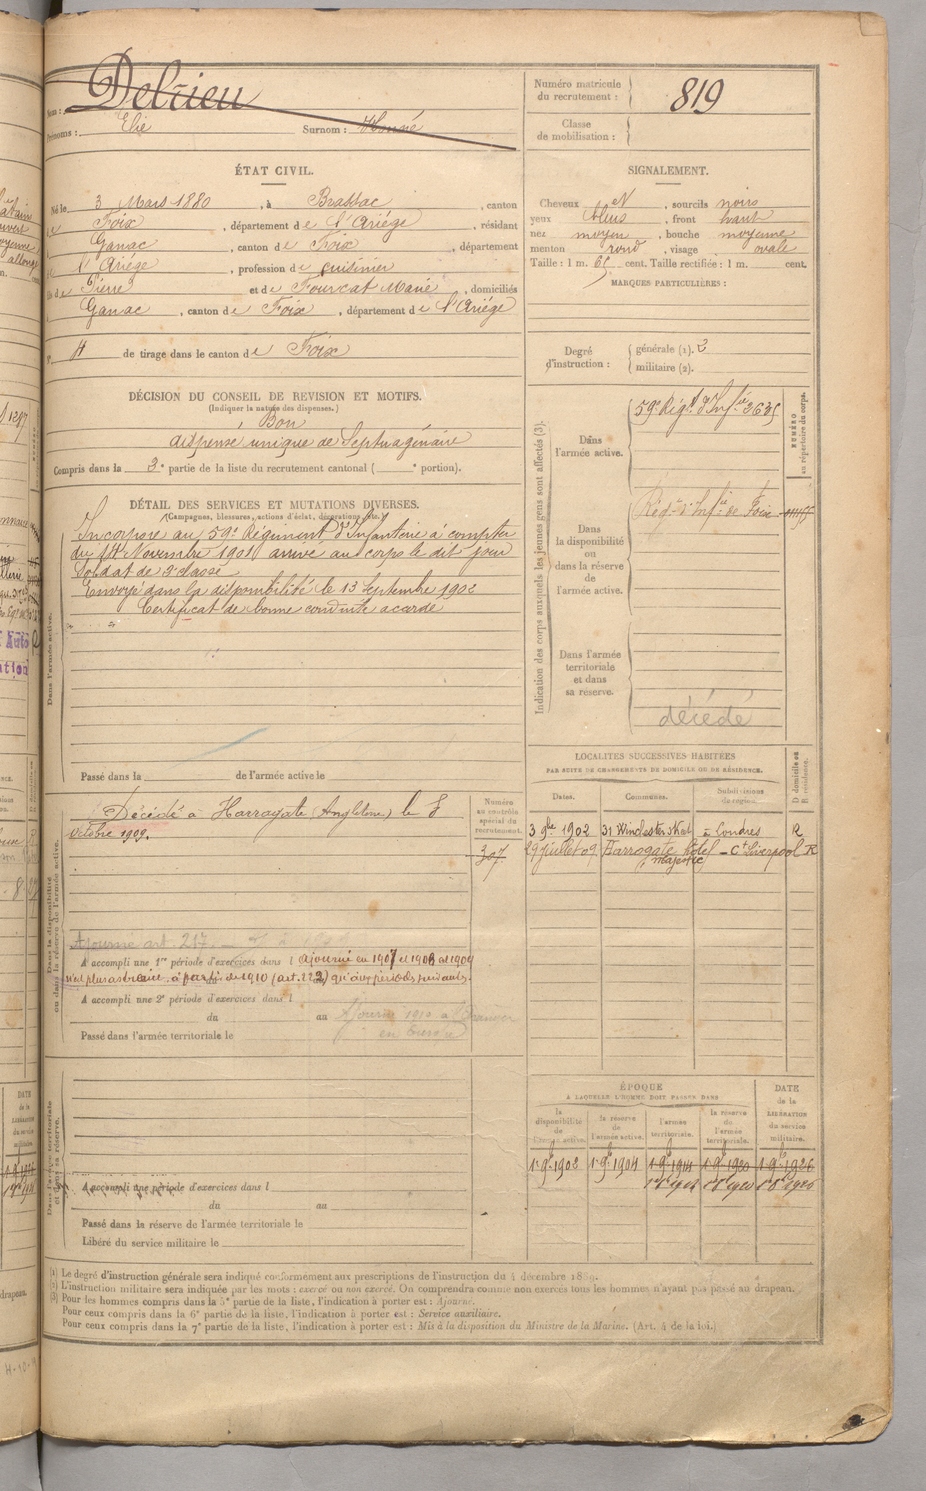 Delrieu
Nom :
Prénoms : Elie Surnom : Honoré
Numéro matricule
du recrutement : 819
Classe
de mobilisation :
ÉTAT CIVIL.
Né le 3 Mars 1880, à Brassac, canton
de Foix, département de l'Ariége, résidant
Ganac, canton de Foix, département
l'Ariége, profession de cuisinier
fils de Pierre et de Fourcat Marie, domiciliés
Ganac, canton de Foix, département de l'Ariége
N° 4 de tirage dans le canton de Foix
SIGNALEMENT.
Cheveux et sourcils noirs
yeux bleus, front haut
nez moyen, bouche moyenne
menton rond, visage ovale
Taille : 1 m. 65 cent. Taille rectifiée : 1 m. cent.
MARQUES PARTICULIÈRES :
Degré
d'instruction :
générale (1). 3
militaire (2).
DÉCISION DU CONSEIL DE REVISION ET MOTIFS.
(Indiquer la nature des dispenses.)
Bon
dispensé unique de Septuagénaire
Compris dans la 3e partie de la liste du recrutement cantonal ( e portion).
DÉTAIL DES SERVICES ET MUTATIONS DIVERSES.
(Campagnes, blessures, actions d'éclat, décorations, etc.)
Incorporé au 59e Régiment d'Infanterie à compter
du 14 Novembre 1901 arrivé au corps le dit jour
Soldat de 2e classe
Envoyé dans la disponibilité le 13 Septembre 1902
Certificat de bonne conduite accordé
Dans l'armée active.
Passé dans la de l'armée active le
Indication des corps auxquels les jeunes gens sont affectés (3).
Dans
l'armée active.
59e Régt d'Infie 3635
NUMÉRO
au répertoire du corps.
Dans
la disponibilité
ou
dans la réserve
de
l'armée active.
Régt d'Infie de Foix
Dans l'armée
territoriale
et dans
sa réserve.
décédé
Dans la disponibilité
ou dans la réserve de l'armée active.
Décédé à Harragate (Angleterre) le 8
octobre 1909.
Numéro
au contrôle
spécial du
recrutement.
307
LOCALITÉS SUCCESSIVES HABITÉES
PAR SUITE DE CHANGEMENTS DE DOMICILE OU DE RÉSIDENCE.
Dates. Communes. Subdivisions de région. D domicile ou R résidence.
3 9bre 1902 31 Winchester Street à Londres R
29 juillet 09 Harrogate hôtel - Ct Liverpool R
majestic
Ajourné art. 217
A accompli une 1re période d'exercices dans l Ajourné en 1907 et 1908 et 1909
n'est plus astreint, à partir de 1910 (art. 223) qu'aux périodes suivantes.
A accompli une 2e période d'exercices dans l
du au Ajourné 1910 à l'étranger
en Europe
Passé dans l'armée territoriale le
Dans l'armée territoriale
et dans sa réserve.
A accompli une période d'exercices dans l
du au
Passé dans la réserve de l'armée territoriale le
Libéré du service militaire le
ÉPOQUE
À LAQUELLE L'HOMME DOIT PASSER DANS
la disponibilité de l'armée active. la réserve de l'armée active. l'armée territoriale. la réserve de l'armée territoriale.
DATE de la LIBÉRATION du service militaire.
1er 9bre 1902 1er 9bre 1904 1er 9bre 1914 1er 9bre 1920 1er 9bre 1926
1er 8bre 1914 1er 8bre 1920 1er 8bre 1926
(1) Le degré d'instruction générale sera indiqué conformément aux prescriptions de l'instruction du 4 décembre 1889.
(2) L'instruction militaire sera indiquée par les mots : exercé ou non exercé. On comprendra comme non exercés tous les hommes n'ayant pas passé au drapeau.
(3) Pour les hommes compris dans la 5e partie de la liste, l'indication à porter est : Ajourné.
Pour ceux compris dans la 6e partie de la liste, l'indication à porter est : Service auxiliaire.
Pour ceux compris dans la 7e partie de la liste, l'indication à porter est : Mis à la disposition du Ministre de la Marine. (Art. 4 de la loi.)